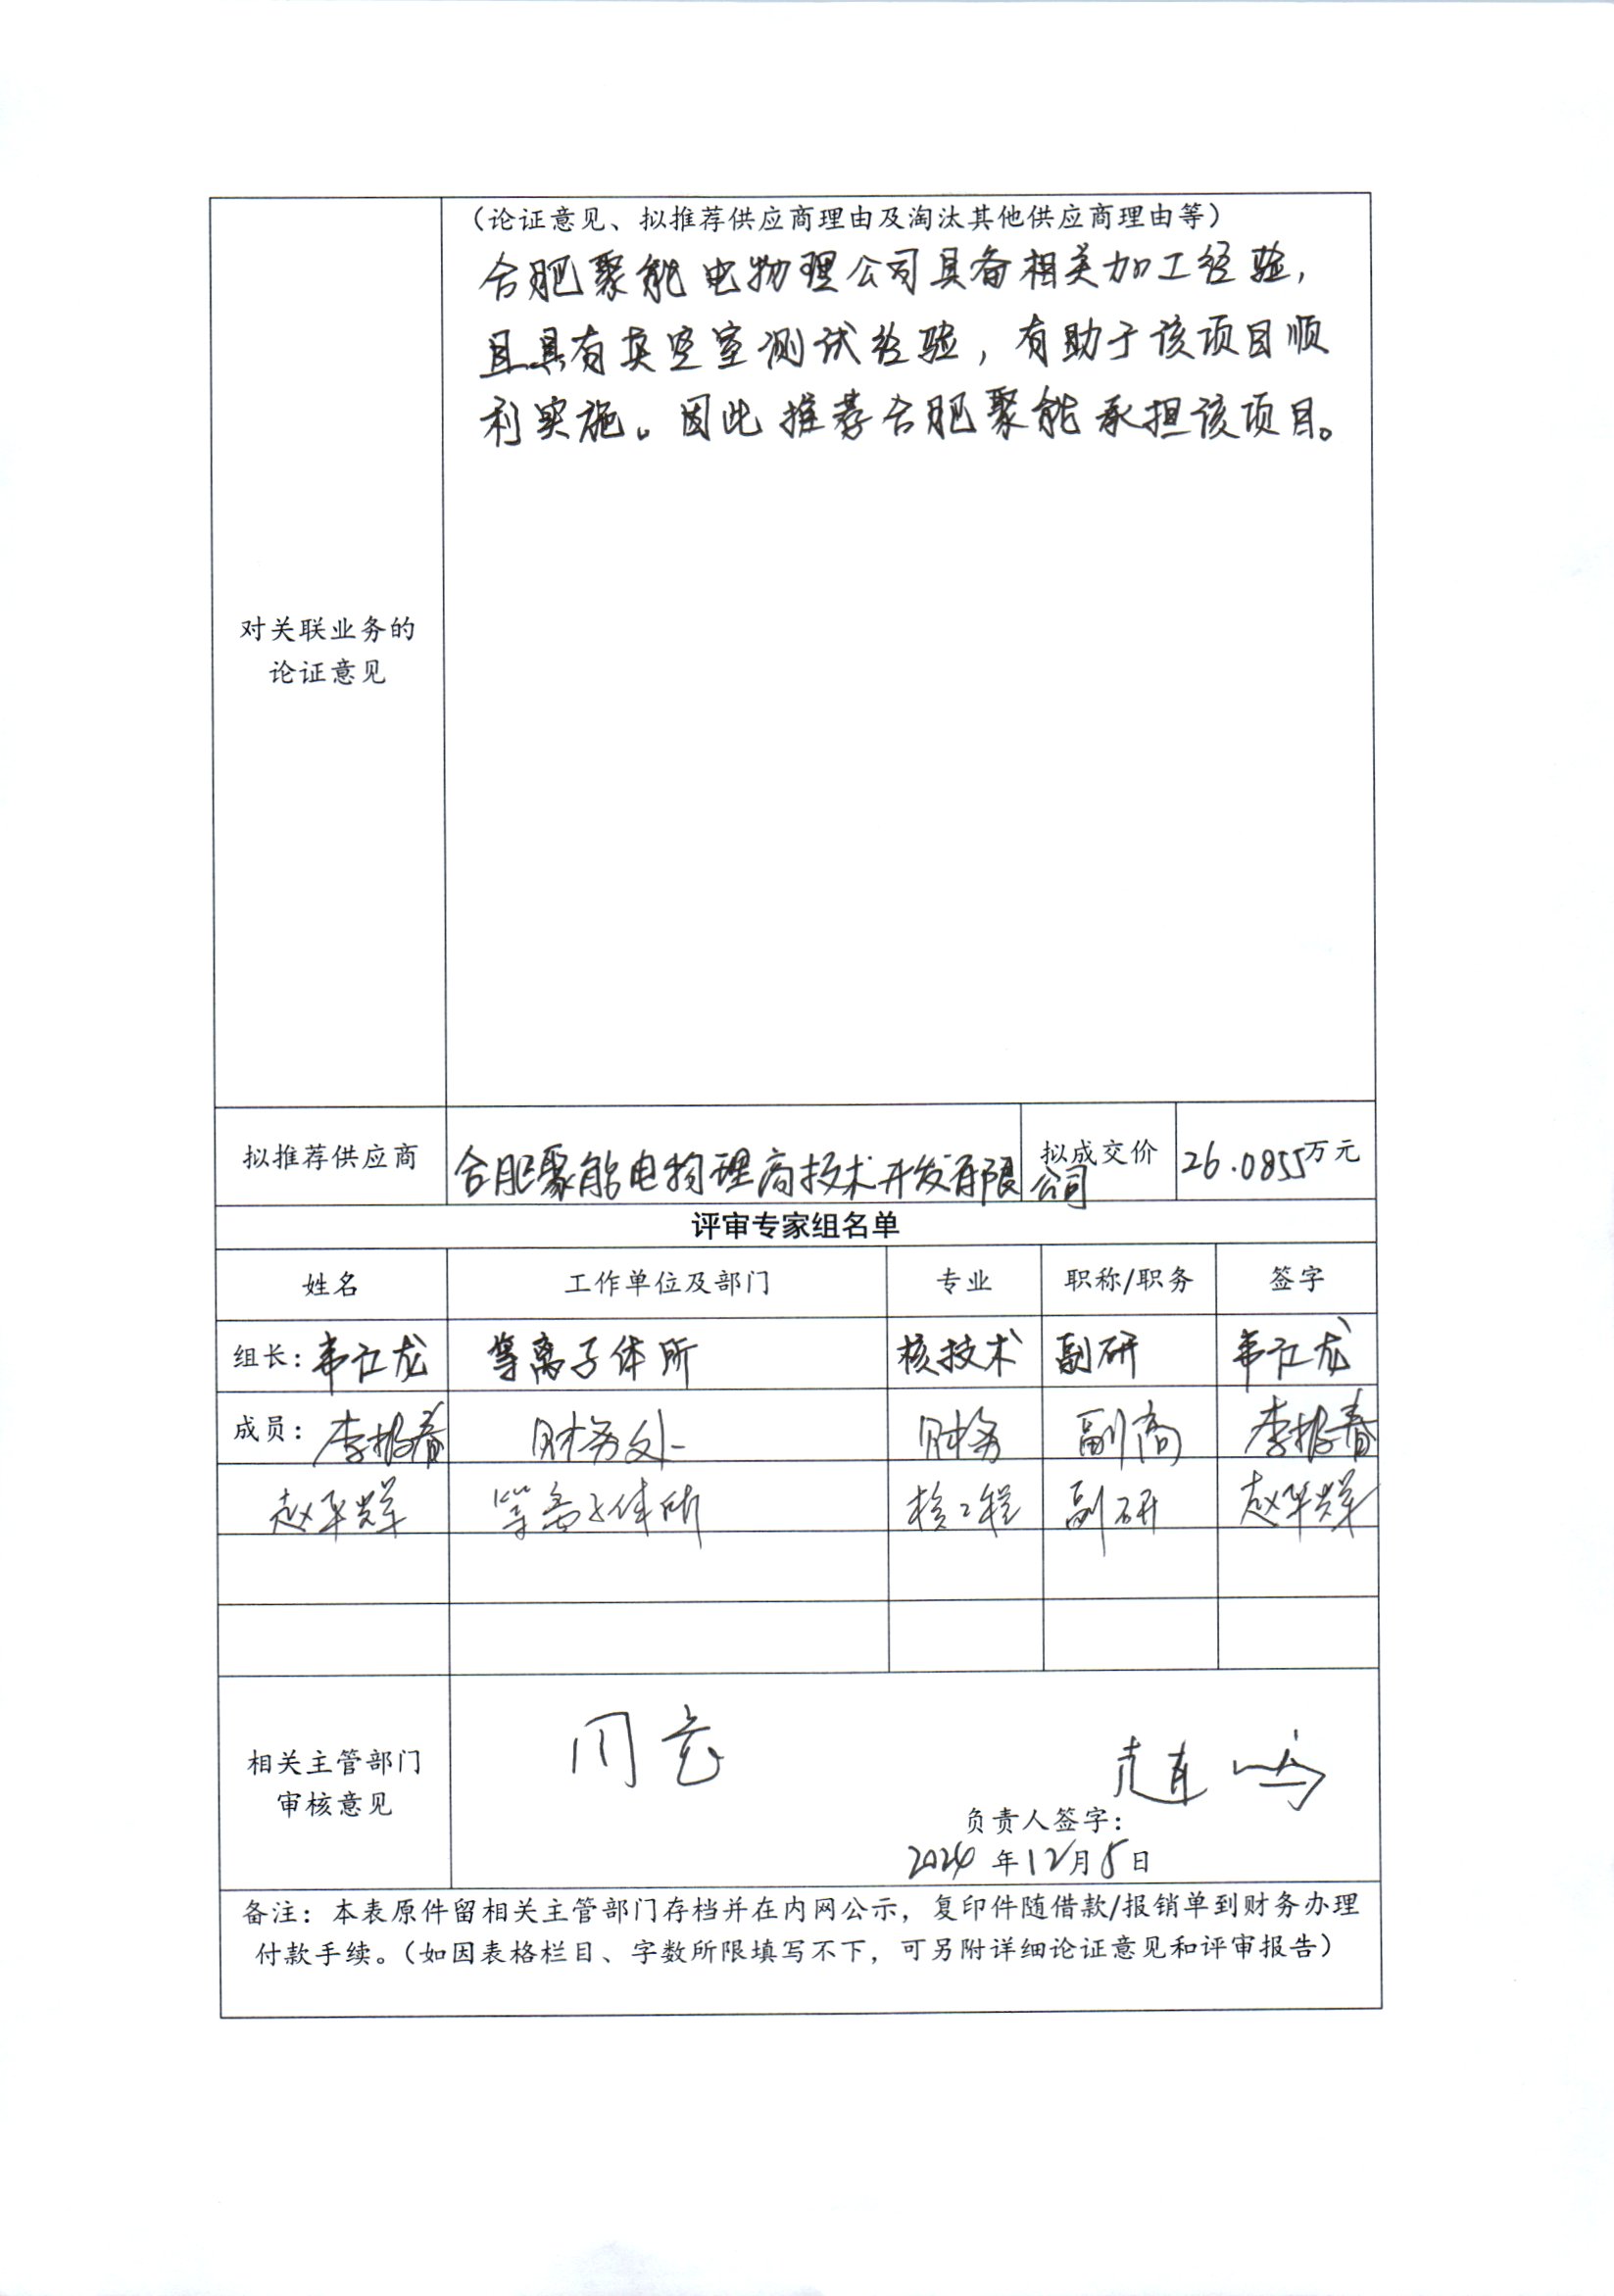 (论证意见、拟推荐供应商理由及淘汰其他供应商理由等)
合肥聚能电物理公司具备相关加工经验,
且具有真空室测试经验,有助于该项目顺
利实施。因此推荐合肥聚能承担该项目。
对关联业务的
论证意见
拟推荐供应商 合肥聚能电物理高技术开发有限公司 拟成交价 26.0855万元
评审专家组名单
姓名 工作单位及部门 专业 职称/职务 签字
组长:韦江龙 等离子体所 核技术 副研 韦江龙
成员:李振春 财务处 财务 副高 李振春
赵华辉 等离子体所 核工程 副研 赵华辉
同意
相关主管部门
审核意见
负责人签字:
2024年12月5日
备注:本表原件留相关主管部门存档并在内网公示,复印件随借款/报销单到财务办理
付款手续。(如因表格栏目、字数所限填写不下,可另附详细论证意见和评审报告)